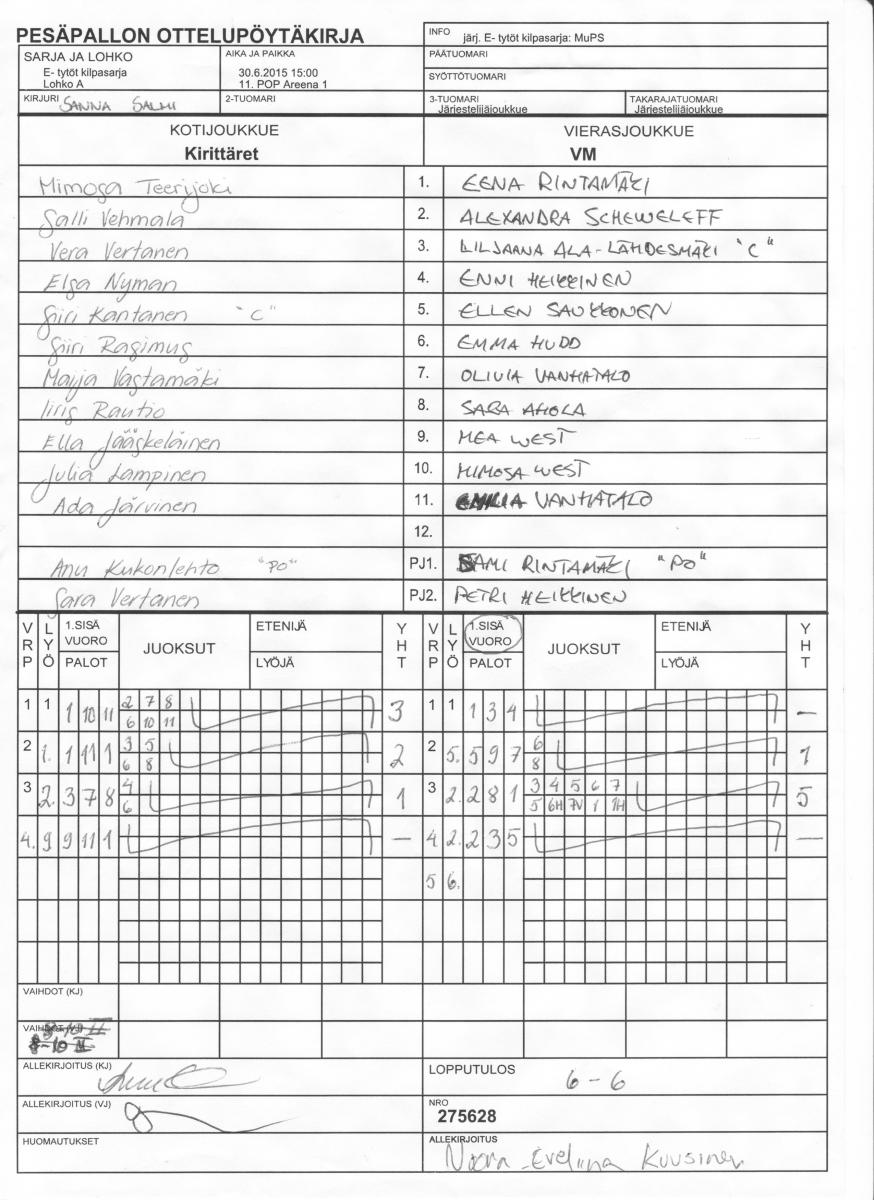 PESÄPALLON OTTELUPÖYTÄKIRJA
INFO järj. E- tytöt kilpasarja: MuPS
PÄÄTUOMARI
SYÖTTÖTUOMARI
SARJA JA LOHKO
E- tytöt kilpasarja
Lohko A
AIKA JA PAIKKA
30.6.2015 15:00
11. POP Areena 1
KIRJURI SANNA SALMI
2-TUOMARI
3-TUOMARI
Järjestelijäjoukkue
TAKARAJATUOMARI
Järjestelijäjoukkue
KOTIJOUKKUE
Kirittäret
VIERASJOUKKUE
VM
Mimosa Teerijoki 1. EENA RINTAMÄKI
Salli Vehmala 2. ALEXANDRA SCHEWELEFF
Vera Vertanen 3. LILJAANA ALA-LÄHDESMÄKI "C"
Elsa Nyman 4. ENNI HEIKKINEN
Siiri Kantanen "C" 5. ELLEN SAUKKONEN
Siiri Rasimus 6. EMMA HUDD
Maija Vastamäki 7. OLIVIA VANHATALO
Iiris Rautio 8. SARA AHOLA
Ella Jääskeläinen 9. MEA WEST
Julia Lampinen 10. MIMOSA WEST
Ada Järvinen 11. EMILIA VANHATALO
12.
Anu Kukonlehto "PO" PJ1. SAMI RINTAMÄKI "PO"
Sara Vertanen PJ2. PETRI HEIKKINEN
VRP LYÖ 1.SISÄ VUORO PALOT JUOKSUT ETENIJÄ LYÖJÄ YHT VRP LYÖ 1.SISÄ VUORO PALOT JUOKSUT ETENIJÄ LYÖJÄ YHT
1 1 1 10 11 2 7 8 3 1 1 1 3 4 —
6 10 11
2 1. 1 11 1 3 5 2 2 5. 5 9 7 6 1
6 8 8
3 2. 3 7 8 4 1 3 2. 2 8 1 3 4 5 6 7 5
6 5 6H 7V 1 1H
4. 9 9 11 1 — 4 2. 2 3 5 —
5 6.
VAIHDOT (KJ)
VAIHDOT (VJ)
8-10 II
ALLEKIRJOITUS (KJ)
LOPPUTULOS 6 - 6
ALLEKIRJOITUS (VJ)
NRO
275628
HUOMAUTUKSET
ALLEKIRJOITUS
Noora-Eveliina Kuusinen